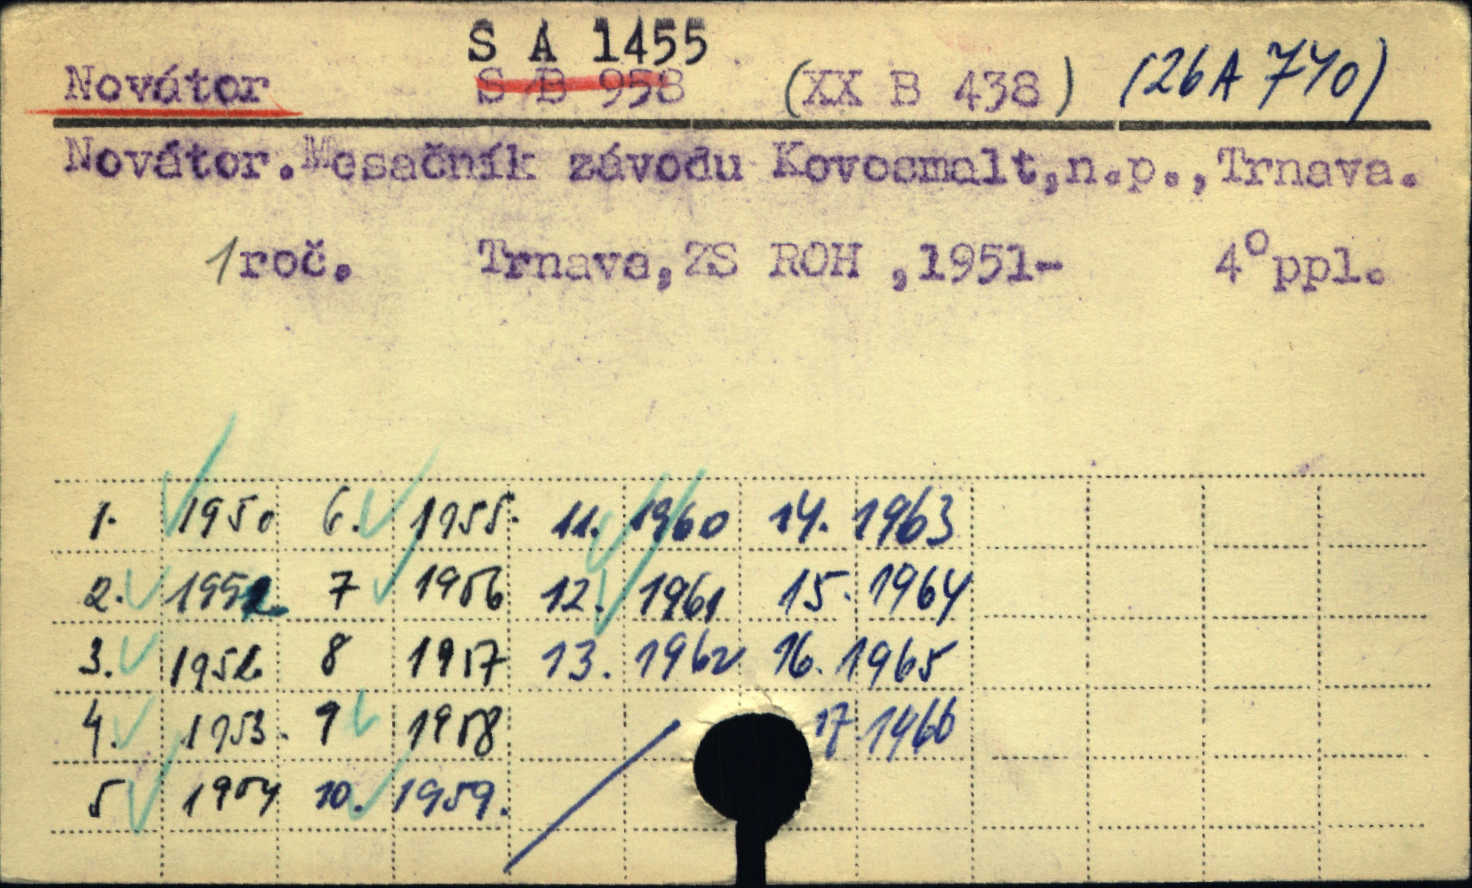 S A 1455
Novátor S B 958 (XX B 438) (26 A 740)
Novátor. Mesačník závodu Kovosmalt, n.p., Trnava.
1 roč. Trnava, ZS ROH, 1951- 4° ppl.
1. 1950 6. 1955. 11. 1960 14. 1963
2. 1951 7 1956 12. 1961 15. 1964
3. 1952 8 1957 13. 1962 16. 1965
4. 1953. 9 1958 17. 1966
5 1954 10. 1959.